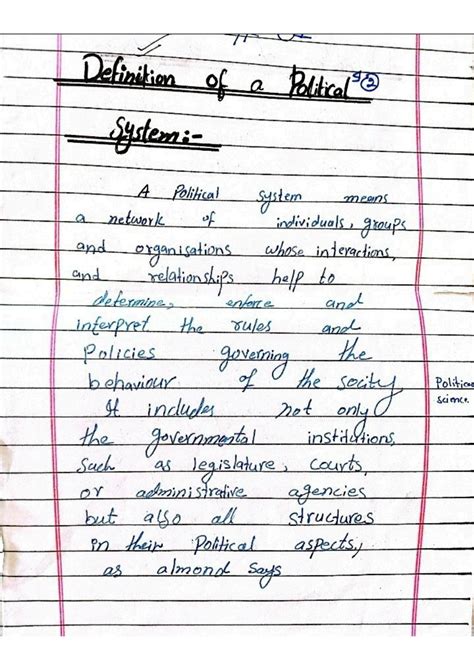 Definition of a Political
②
System:-
A Political system means
a network of individuals, groups
and organisations whose interactions,
and relationships help to
determine, enforce and
interpret the rules and
Policies governing the
behaviour of the socity
Political
science.
It includes not only
the governmental institutions,
Such as legislature, courts,
or administrative agencies
but also all structures
in their Political aspects,
as almond says